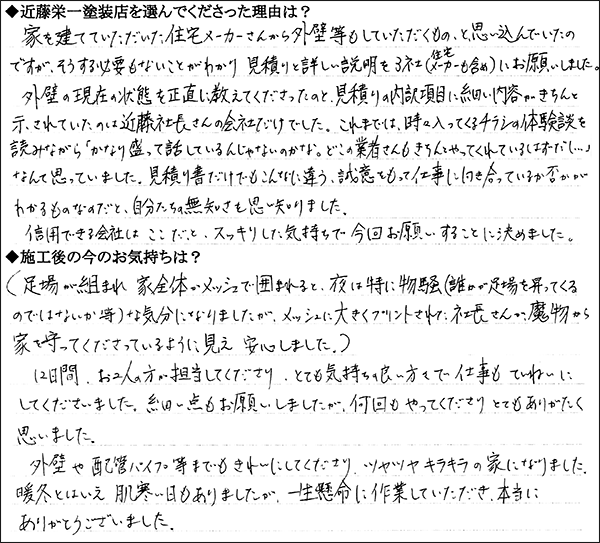 ◆近藤栄一塗装店を選んでくださった理由は？
家を建てていただいた住宅メーカーさんから外壁等もしていただくもの、と思い込んでいたの
ですが、そうする必要もないことがわかり 見積りと詳しい説明を3社(住宅メーカーも含め)にお願いしました。
外壁の現在の状態を正直に教えてくださったのと、見積りの内訳項目に細い内容がきちんと
示されていたのは近藤社長さんの会社だけでした。これまでは、時々入ってくるチラシの体験談を
読みながら「かなり盛って話しているんじゃないのかな。どこの業者さんもきちんとやってくれているはずだし…」
なんて思っていました。見積り書だけでもこんなに違う、誠意をもって仕事に向き合っているか否かが
わかるものなのだと、自分たちの無知さを思い知りました。
信用できる会社は ここだと、スッキリした気持ちで今回お願いすることに決めました。
◆施工後の今のお気持ちは？
(足場が組まれ 家全体がメッシュで囲まれると、夜は特に物騒(誰かが足場を昇ってくる
のではないか等)な気分になりましたが、メッシュに大きくプリントされた社長さんが、魔物から
家を守ってくださっているように見え 安心しました。)
12日間、お2人の方が担当してくださり、とても気持ちの良い方々で 仕事も ていねいに
してくださいました。細い点もお願いしましたが、何回もやってくださりとてもありがたく
思いました。
外壁や配管パイプ等までもきれいにしてくださり、ツヤツヤキラキラの家になりました。
暖冬とはいえ 肌寒い日もありましたが、一生懸命に作業していただき、本当に
ありがとうございました。